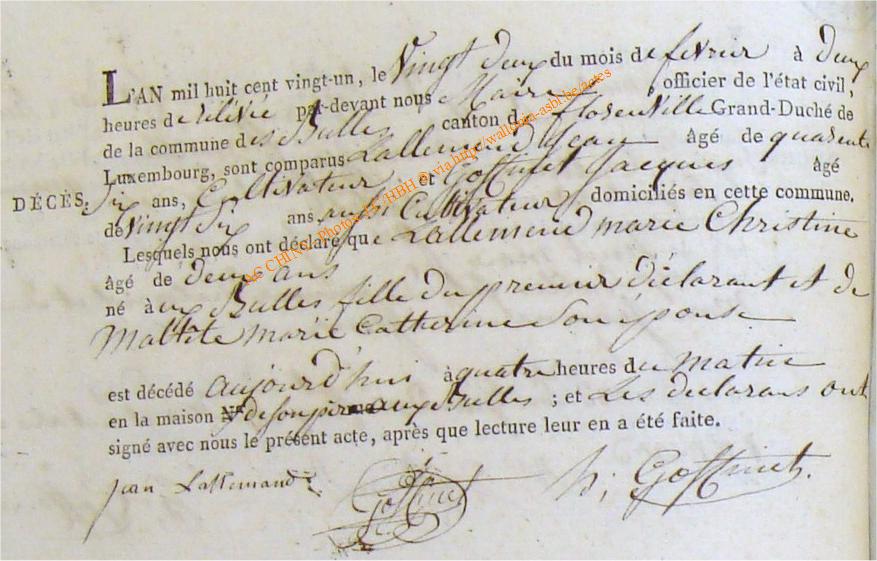 L'AN mil huit cent vingt-un, le Vingt deux du mois de fevrier à deux
heures de rélévée par-devant nous Maire, officier de l'état civil,
de la commune des Bulles canton de florenville Grand-Duché de
Luxembourg, sont comparus Lallemend Jean âgé de quarente
DÉCÈS. Six ans, Cultivateur et Goffinet Jacques âgé
de Vingt Six ans, aussi Cultivateur domiciliés en cette commune.
Lesquels nous ont déclaré que Lallemend marie Christine
âgé de deux ans
né à aux Bulles fille du premier déclarant et de
marie Catherine Son épouse
est décédé aujourd'hui à quatre heures du matin
en la maison de son pere aux Bulles ; et Les declarans ont
signé avec nous le présent acte, après que lecture leur en a été faite.
jean Lallemand Goffinet Goffinet.
CHINA Photos HBH © via http://wallonia-asbl.be/actes